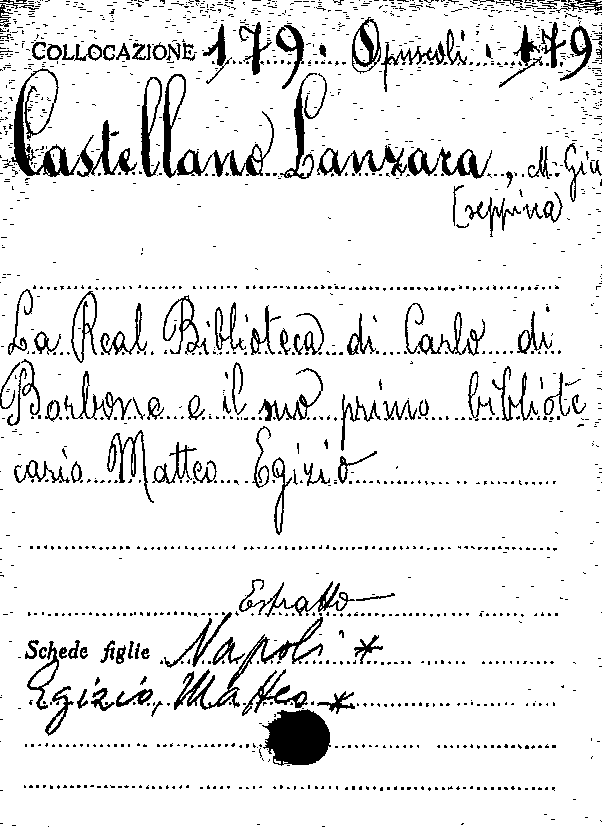 COLLOCAZIONE 179. Opuscoli. 179
Castellano Lanzara, M. Giu
[seppina]
La Real Biblioteca di Carlo di
Borbone e il suo primo bibliote
cario Matteo Egizio
Estratto
Schede figlie Napoli *
Egizio, Matteo *